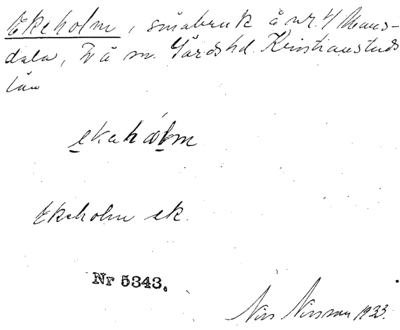 Ekeholm, småbruk å nr. 4 Mans-
dala, Två sn. Gärds hd. Kristianstads
län
ekahålm
Ekeholm ek.
Nr 5343.
Nils Nilsson 1933.